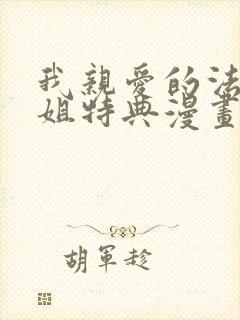 我親愛的法
姐特典漫畫
胡軍趁